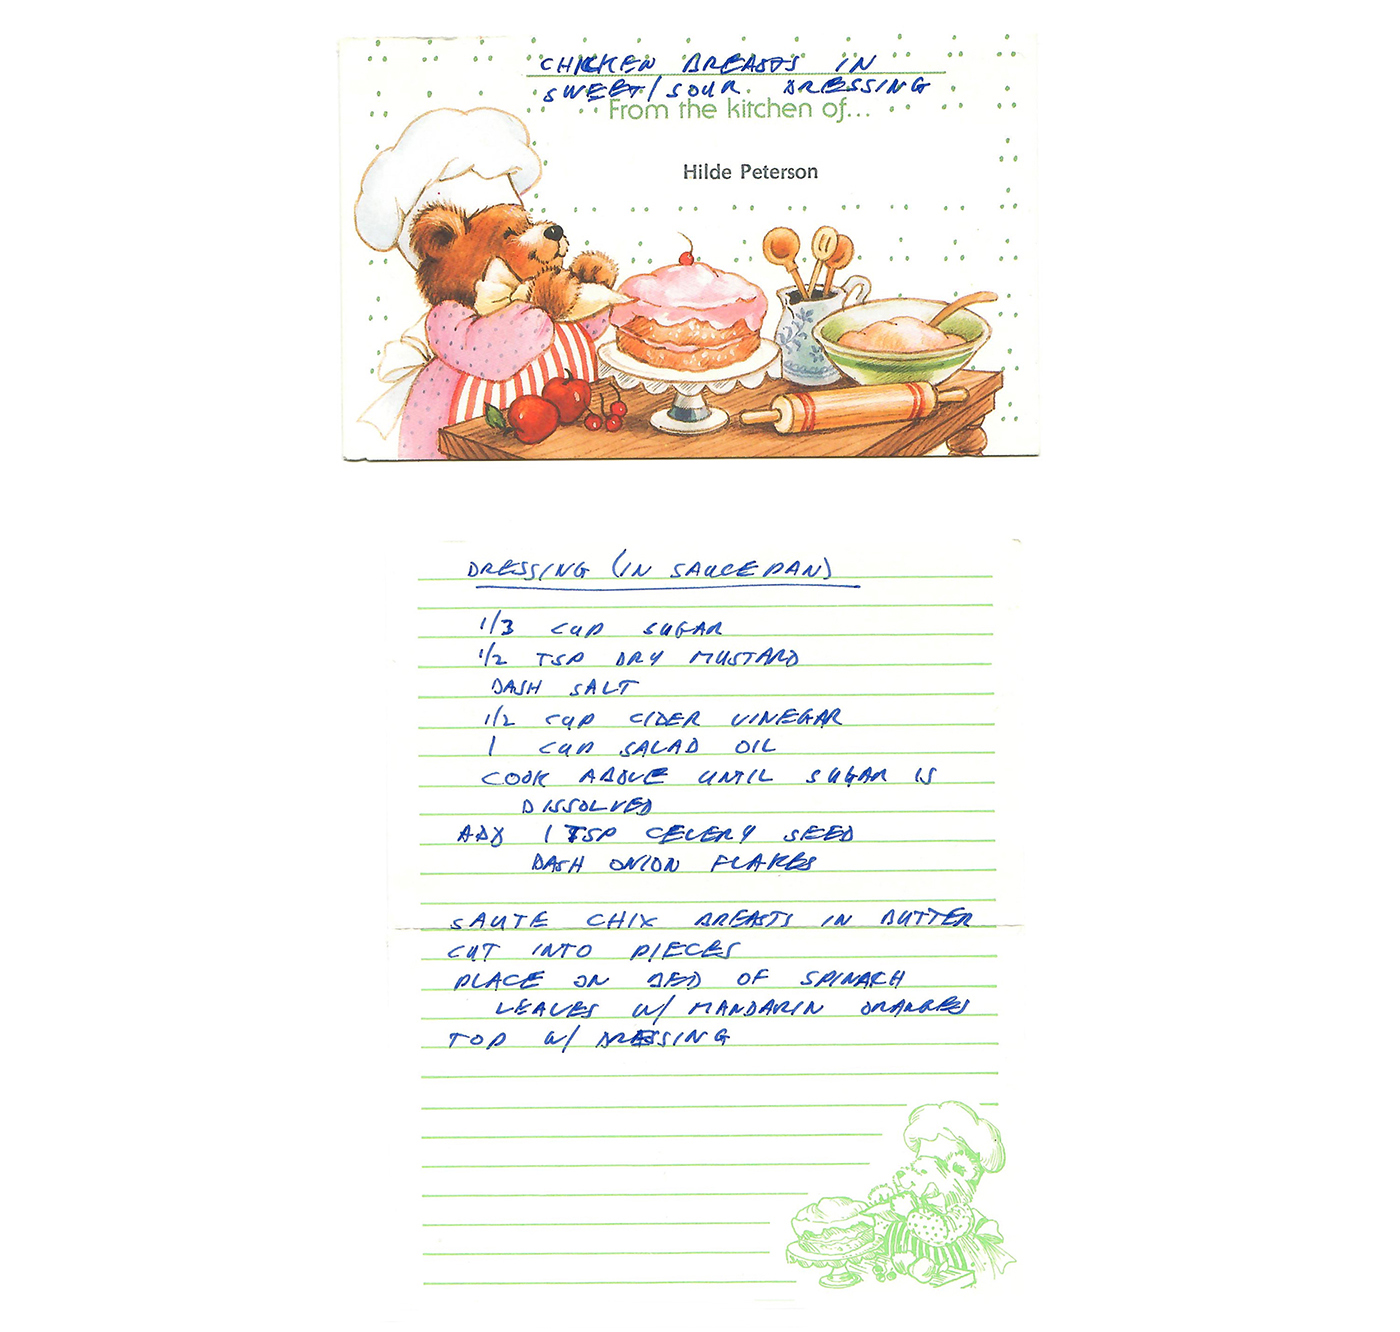 CHICKEN BREASTS IN
SWEET/SOUR DRESSING
From the kitchen of...
Hilde Peterson
DRESSING (IN SAUCEPAN)
1/3 CUP SUGAR
1/2 TSP DRY MUSTARD
DASH SALT
1/2 CUP CIDER VINEGAR
1 CUP SALAD OIL
COOK ABOVE UNTIL SUGAR IS
DISSOLVED
ADD 1 TSP CELERY SEED
DASH ONION FLAKES
SAUTE CHIX BREASTS IN BUTTER
CUT INTO PIECES
PLACE ON BED OF SPINACH
LEAVES W/ MANDARIN ORANGES
TOP W/ DRESSING